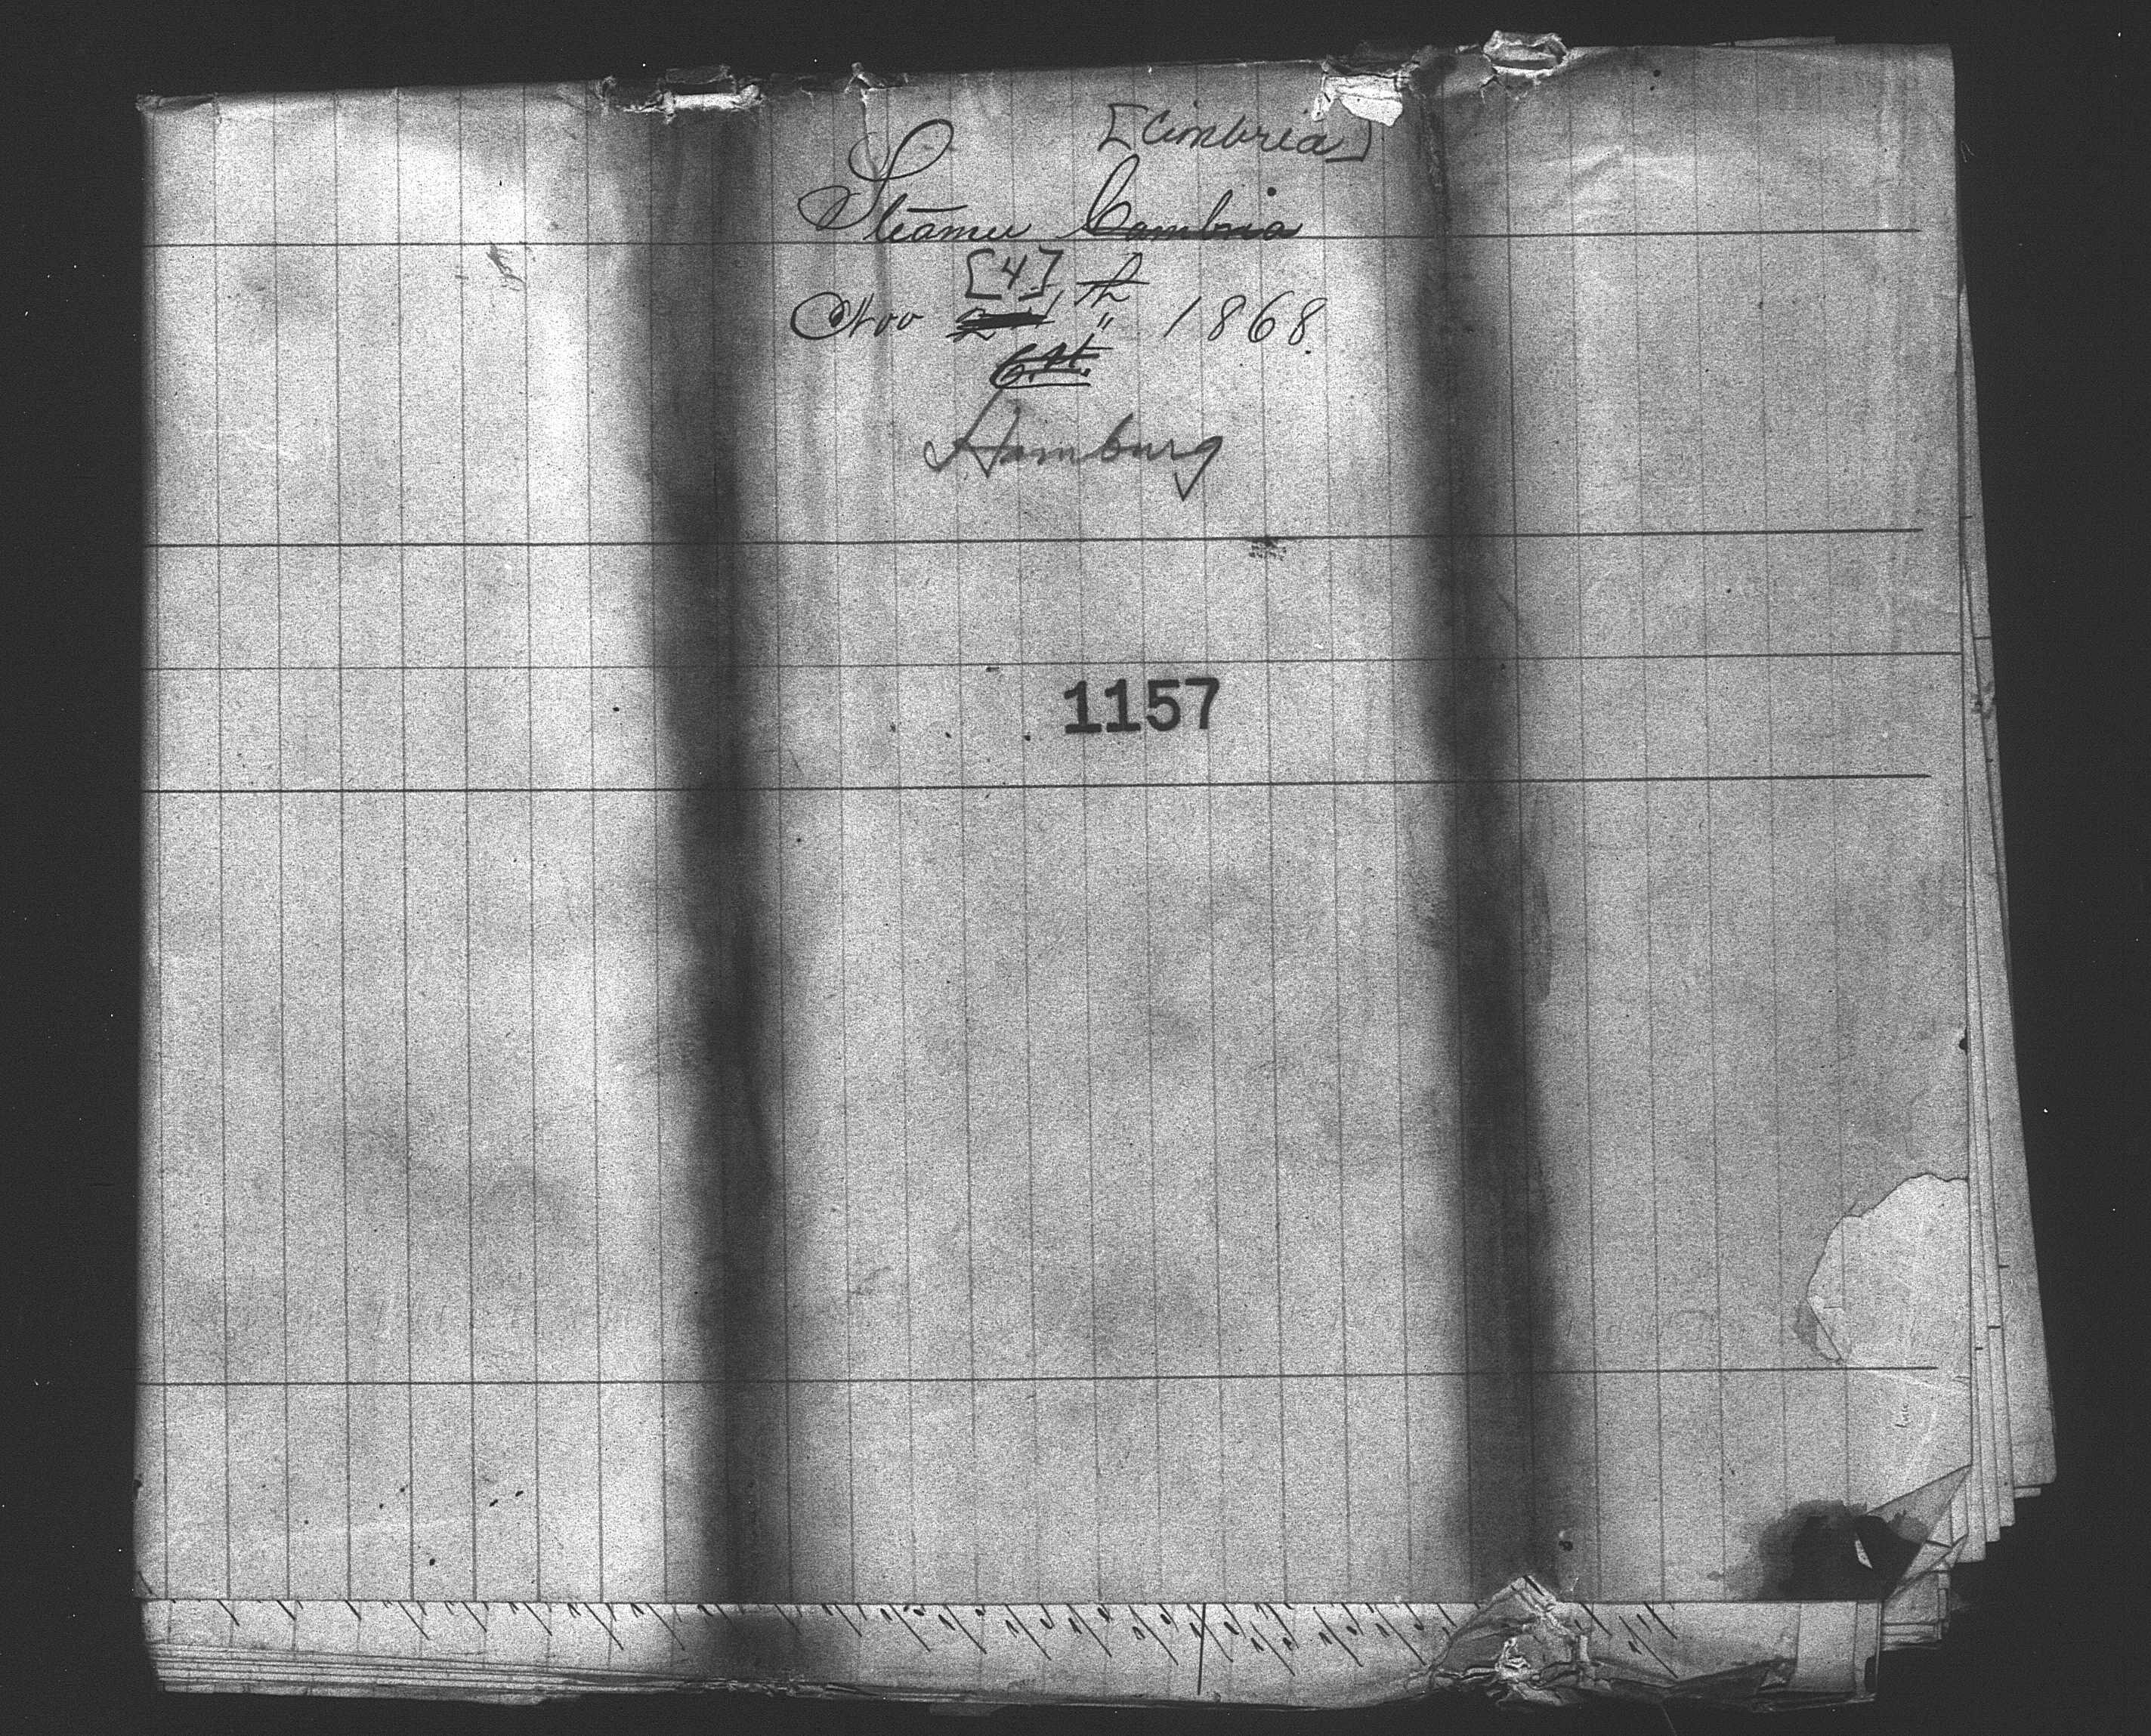 [Cimbria]
Steamer Cambria
[4] th
Nov 1868.
Hamburg
1157